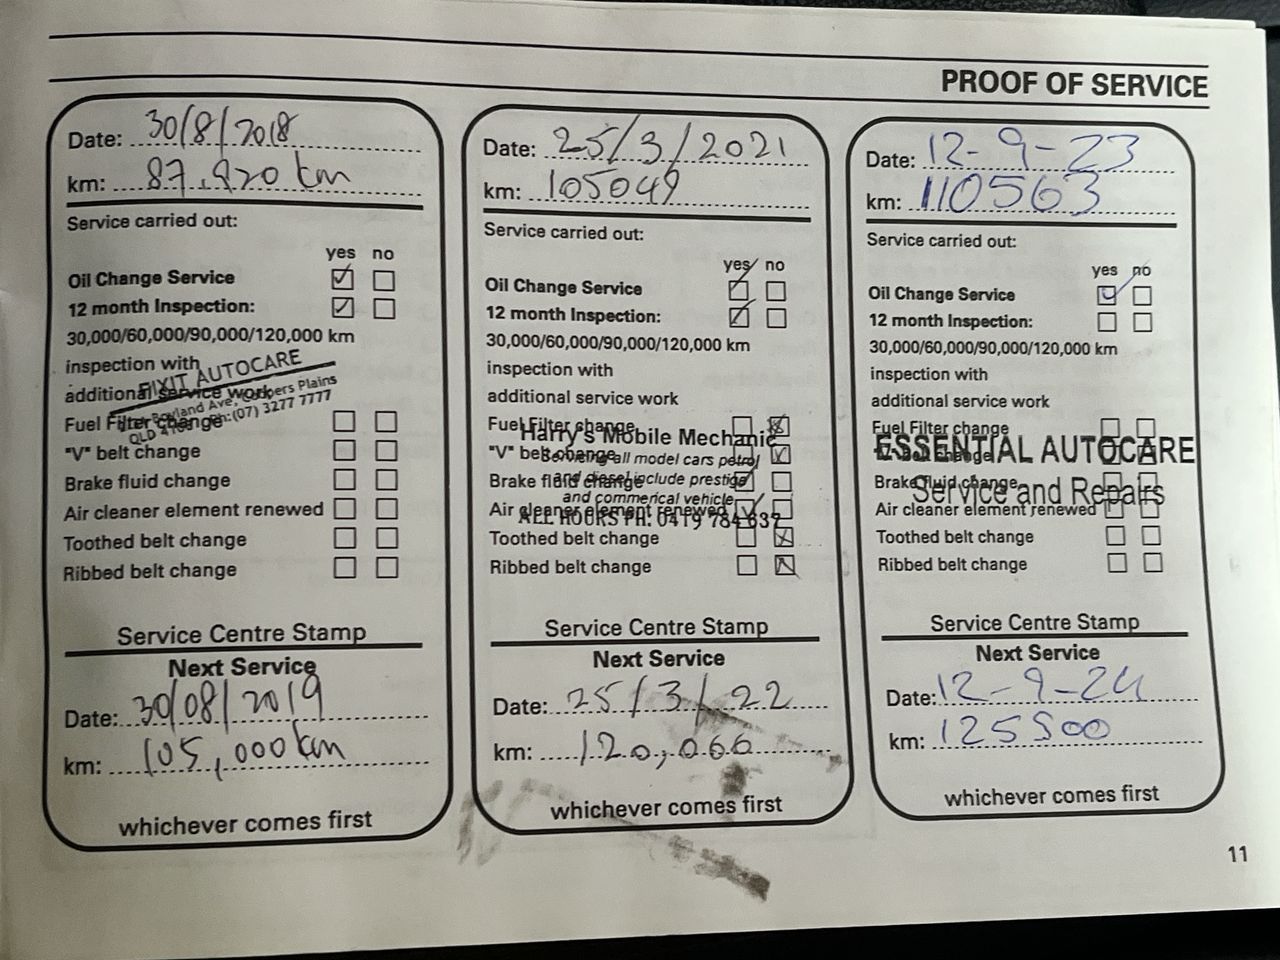 PROOF OF SERVICE
Date: 30/8/2018
km: 87,920 km
Service carried out:
yes no
Oil Change Service
12 month Inspection:
30,000/60,000/90,000/120,000 km
inspection with
additional service work
FIXIT AUTOCARE
Boyland Ave, Coopers Plains
QLD Ph: (07) 3277 7777
Fuel Filter change
"V" belt change
Brake fluid change
Air cleaner element renewed
Toothed belt change
Ribbed belt change
Service Centre Stamp
Next Service
Date: 30/08/2019
km: 105,000 km
whichever comes first
Date: 25/3/2021
km: 105049
Service carried out:
yes no
Oil Change Service
12 month Inspection:
30,000/60,000/90,000/120,000 km
inspection with
additional service work
Fuel Filter change
Harry's Mobile Mechanic
"V" belt change
Servicing all model cars petrol
Brake fluid change
and diesel include prestige
and commerical vehicle
Air cleaner element renewed
ALL HOURS PH: 0419 784 637
Toothed belt change
Ribbed belt change
Service Centre Stamp
Next Service
Date: 25/3/22
km: 120,066
whichever comes first
Date: 12-9-23
km: 110563
Service carried out:
yes no
Oil Change Service
12 month Inspection:
30,000/60,000/90,000/120,000 km
inspection with
additional service work
Fuel Filter change
ESSENTIAL AUTOCARE
"V" belt change
Brake fluid change
Service and Repairs
Air cleaner element renewed
Toothed belt change
Ribbed belt change
Service Centre Stamp
Next Service
Date: 12-9-24
km: 125500
whichever comes first
11